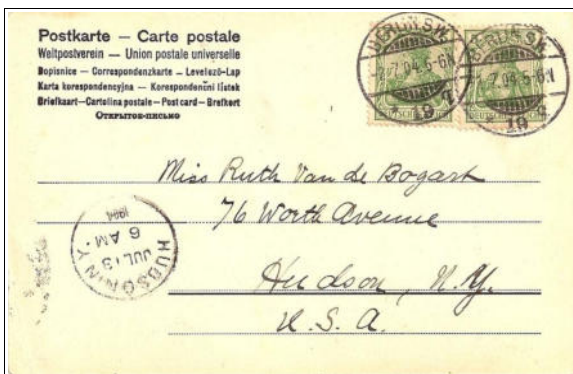 Postkarte — Carte postale
Weltpostverein — Union postale universelle
Dopisnice — Correspondenzkarte — Levelező-Lap
Karta korespondencyjna — Korespondenční lístek
Briefkaart—Cartolina postale—Post card—Brefkort
Открытое-письмо
BERLIN S.W.
7.04.5-6N
19
BERLIN S.W.
7.04.5-6N
19
Miss Ruth Van de Bogart
76 Worth Avenue
Hudson, N.Y.
U.S.A.
HUDSON N.Y.
JUL 13
6 AM
1904